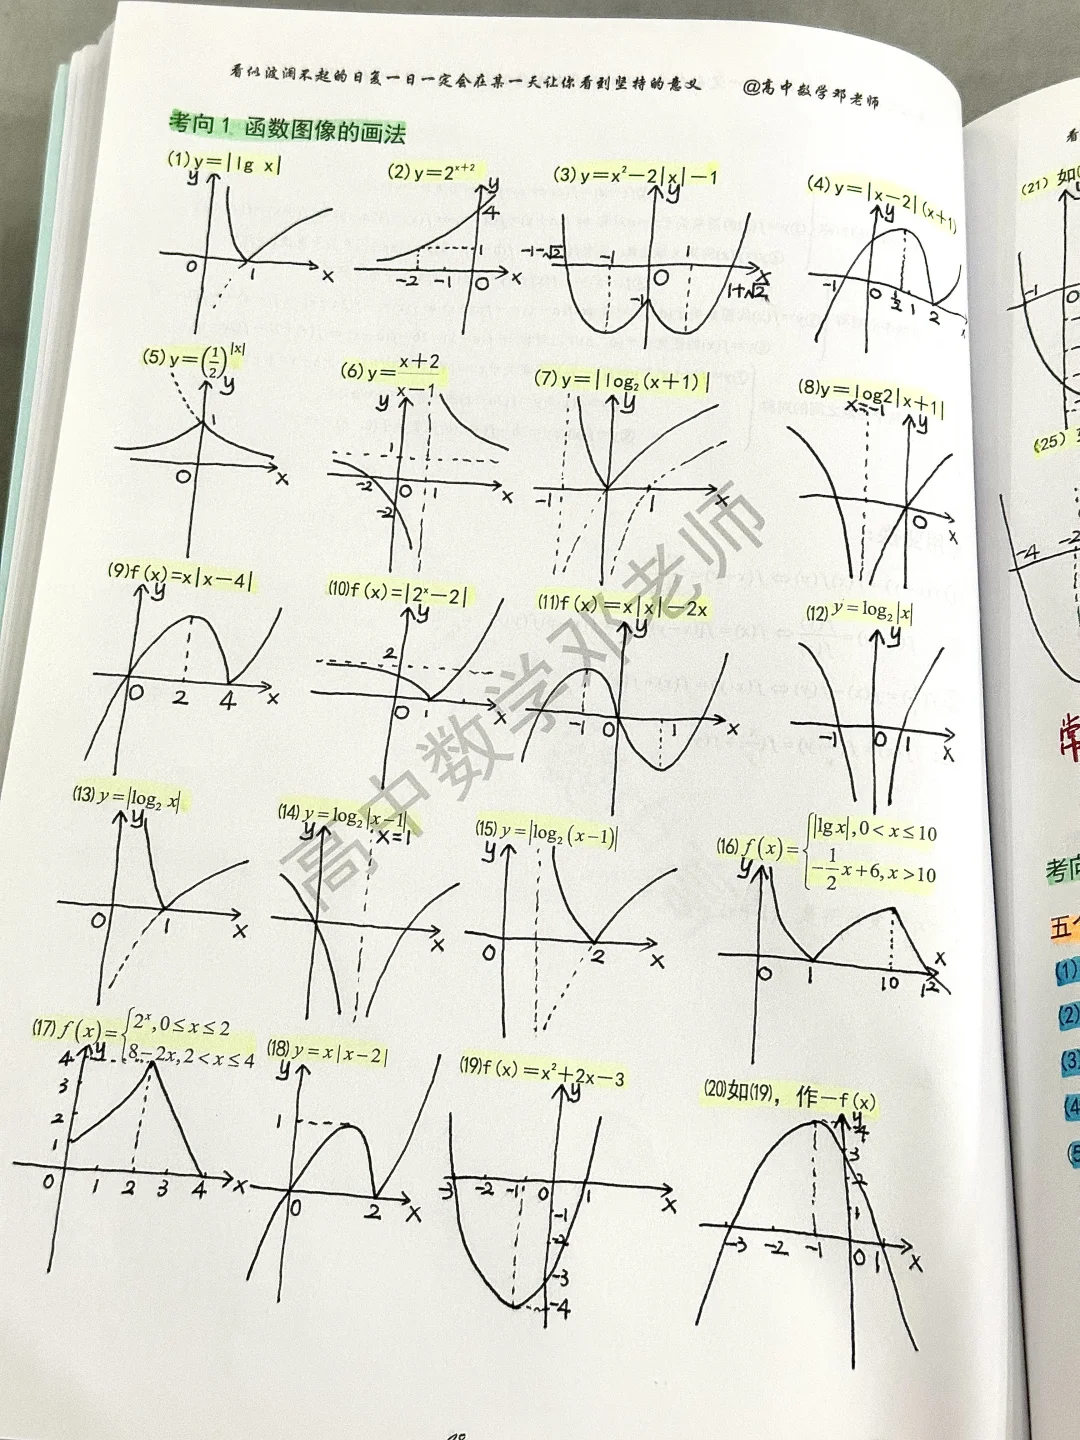 看似波澜不起的日复一日一定会在某一天让你看到坚持的意义 @高中数学邓老师
考向1 函数图像的画法
(1) y=|lg x|
(2) y=2^{x+2}
(3) y=x²-2|x|-1
(4) y=|x-2|(x+1)
y x 0 1
y 4 1 -2 -1 0 x
y -1-√2 -1 1 0 -1 x 1+√2
y -1 0 1/2 1 2 x
(5) y=(1/2)^{|x|}
(6) y=\frac{x+2}{x-1}
(7) y=|log₂(x+1)|
(8) y=log2|x+1|
y 1 0 x
y 1 -2 0 1 x -2
y -1 1 x
x=-1 y 0 x
(9) f(x)=x|x-4|
(10) f(x)=|2^x-2|
(11) f(x)=x|x|-2x
(12) y=log₂|x|
y 0 2 4 x
y 2 0 1 x
y -1 0 1 x
y -1 0 1 x
(13) y=|log₂ x|
(14) y=log₂|x-1|
(15) y=|log₂(x-1)|
(16) f(x)={|lg x|, 0<x≤10
-\frac{1}{2}x+6, x>10
y 0 1 x
y x=1 x
y 0 2 x
y 0 1 10 12 x
(17) f(x)={2^x, 0≤x≤2
8-2x, 2<x≤4
(18) y=x|x-2|
(19) f(x)=x²+2x-3
(20) 如(19), 作-f(x)
y 4 3 2 1 0 1 2 3 4 x
y 1 0 2 x
y -3 -2 -1 0 1 x -1 -2 -3 -4
y 4 3 2 1 -3 -2 -1 0 1 x
高中数学邓老师
(21) 如
y -1 0
(25)
-4 -2
常
考向
五个
(1)
(2)
(3)
(4)
(5)